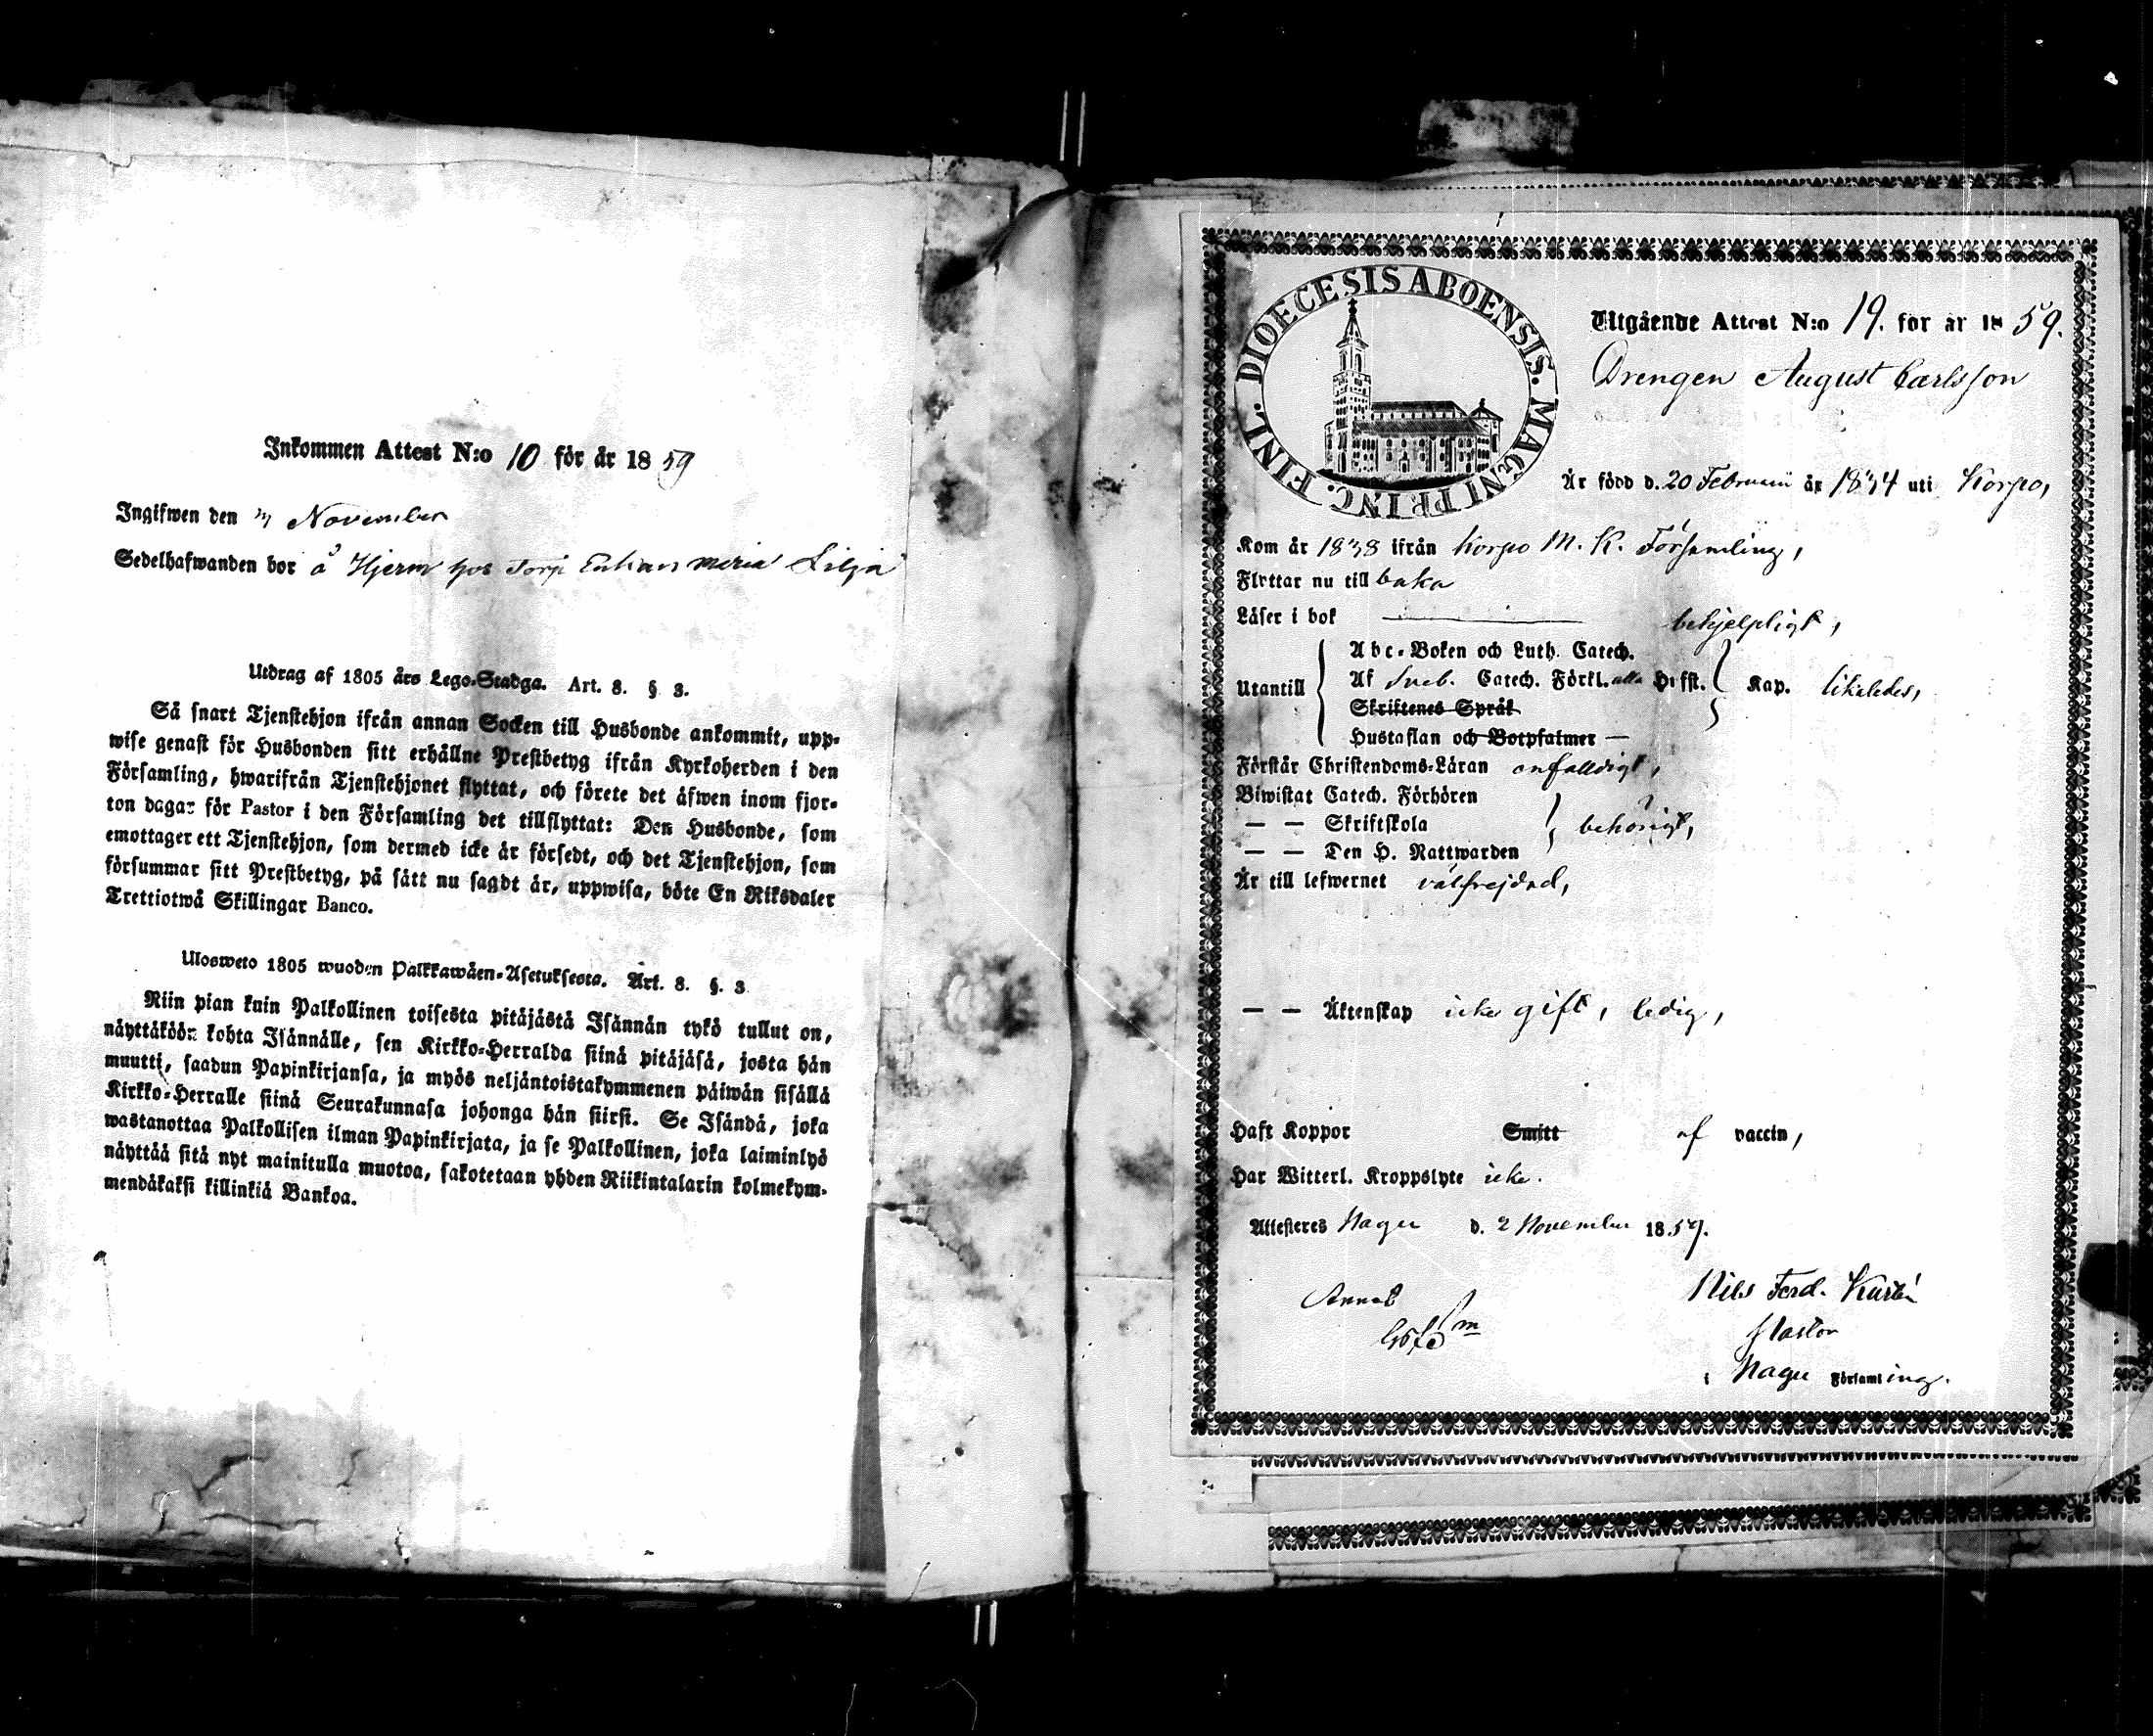 Inkommen Attest N:o 10 för år 1859
Ingifwen den November
Sedelhafwanden bor å Hjerm hos Torp Enkan Maria Lilja
Utdrag af 1805 års Lego-Stadga. Art. 8. § 3.
Så snart Tjenstehjon ifrån annan Socken till Husbonde ankommit, upp-
wise genast för Husbonden sitt erhållne Prestbetyg ifrån Kyrkoherden i den
Församling, hwarifrån Tjenstehjonet flyttat, och förete det äfwen inom fjor-
ton dagar för Pastor i den Församling det tillflyttat: Den Husbonde, som
emottager ett Tjenstehjon, som dermed icke är försedt, och det Tjenstehjon, som
försummar sitt Prestbetyg, på sätt nu sagdt är, uppwisa, böte En Riksdaler
Trettiotwå Skillingar Banco.
Ulosweto 1805 wuoden Palkkawäen-Asetuksesta. Art. 8. §. 3
Niin pian kuin Palkollinen toisesta pitäjästä Isännän tykö tullut on,
näyttäköön kohta Isännälle, sen Kirkko-Herralda siinä pitäjäsä, josta hän
muutti, saadun Papinkirjansa, ja myös neljäntoistakymmenen päiwän sisällä
Kirkko-Herralle siinä Seurakunnasa johonga hän siirsi. Se Isändä, joka
wastanottaa Palkollisen ilman Papinkirjata, ja se Palkollinen, joka laiminlyö
näyttää sitä nyt mainitulla muotoa, sakotetaan yhden Riikintalarin kolmekym-
mendäkaksi killinkiä Bankoa.
DIOECESIS ABOENSIS. MAGNI PRINC. FINL.
Utgående Attest N:o 19. för år 1859.
Drengen August Carlsson
Är född d. 20 Februarii år 1834 uti Korpo,
Kom år 1838 ifrån Korpo M. K. Församling,
Flyttar nu till baka
Läser i bok behjelpligt,
Abc-Boken och Luth. Catech.
Utantill Af Sveb. Catech. Förkl. alla H:fst. Kap. likaledes,
Skriftenes Språk
Hustaflan och Botpsalmer —
Förstår Christendoms-Läran enfalldigt,
Biwistat Catech. Förhören
— — Skriftskola behörigt,
— — Den H. Nattwarden
Är till lefwernet välfrejdad,
— — Äktenskap icke gift, ledig,
Haft Koppor Smitt af vaccin,
Har Witterl. Kroppslyte icke.
Attesteres Nagu d. 2 November 1859.
Nils Ferd. Kurtén
Pastor
i Nagu Församling.